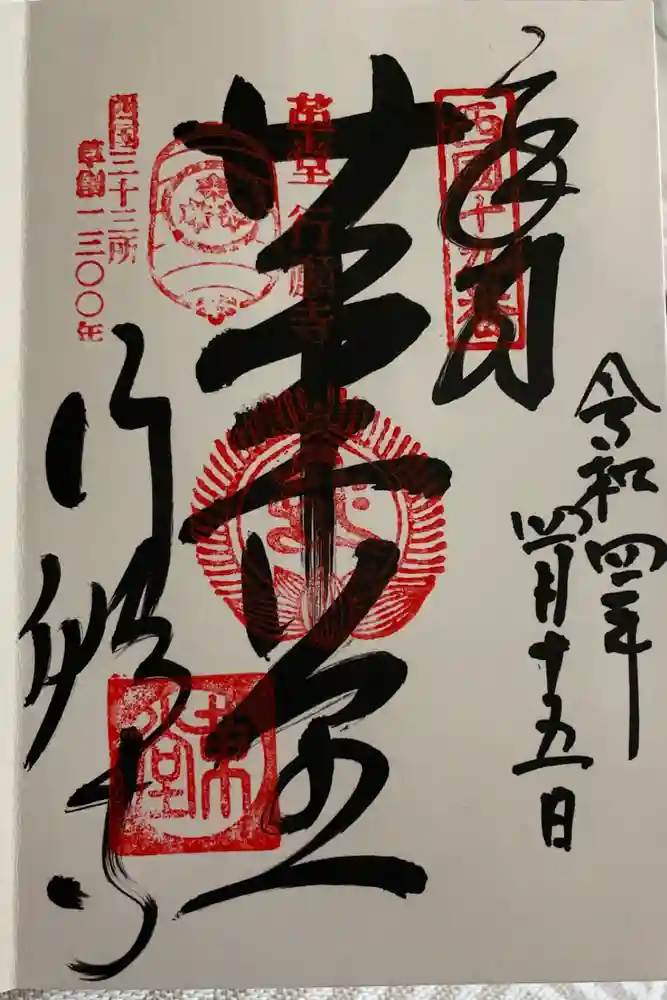 令和四年
四月十五日
西國十九番
革堂
革堂 行願寺
西國三十三所
草創一三〇〇年
行願寺
革堂